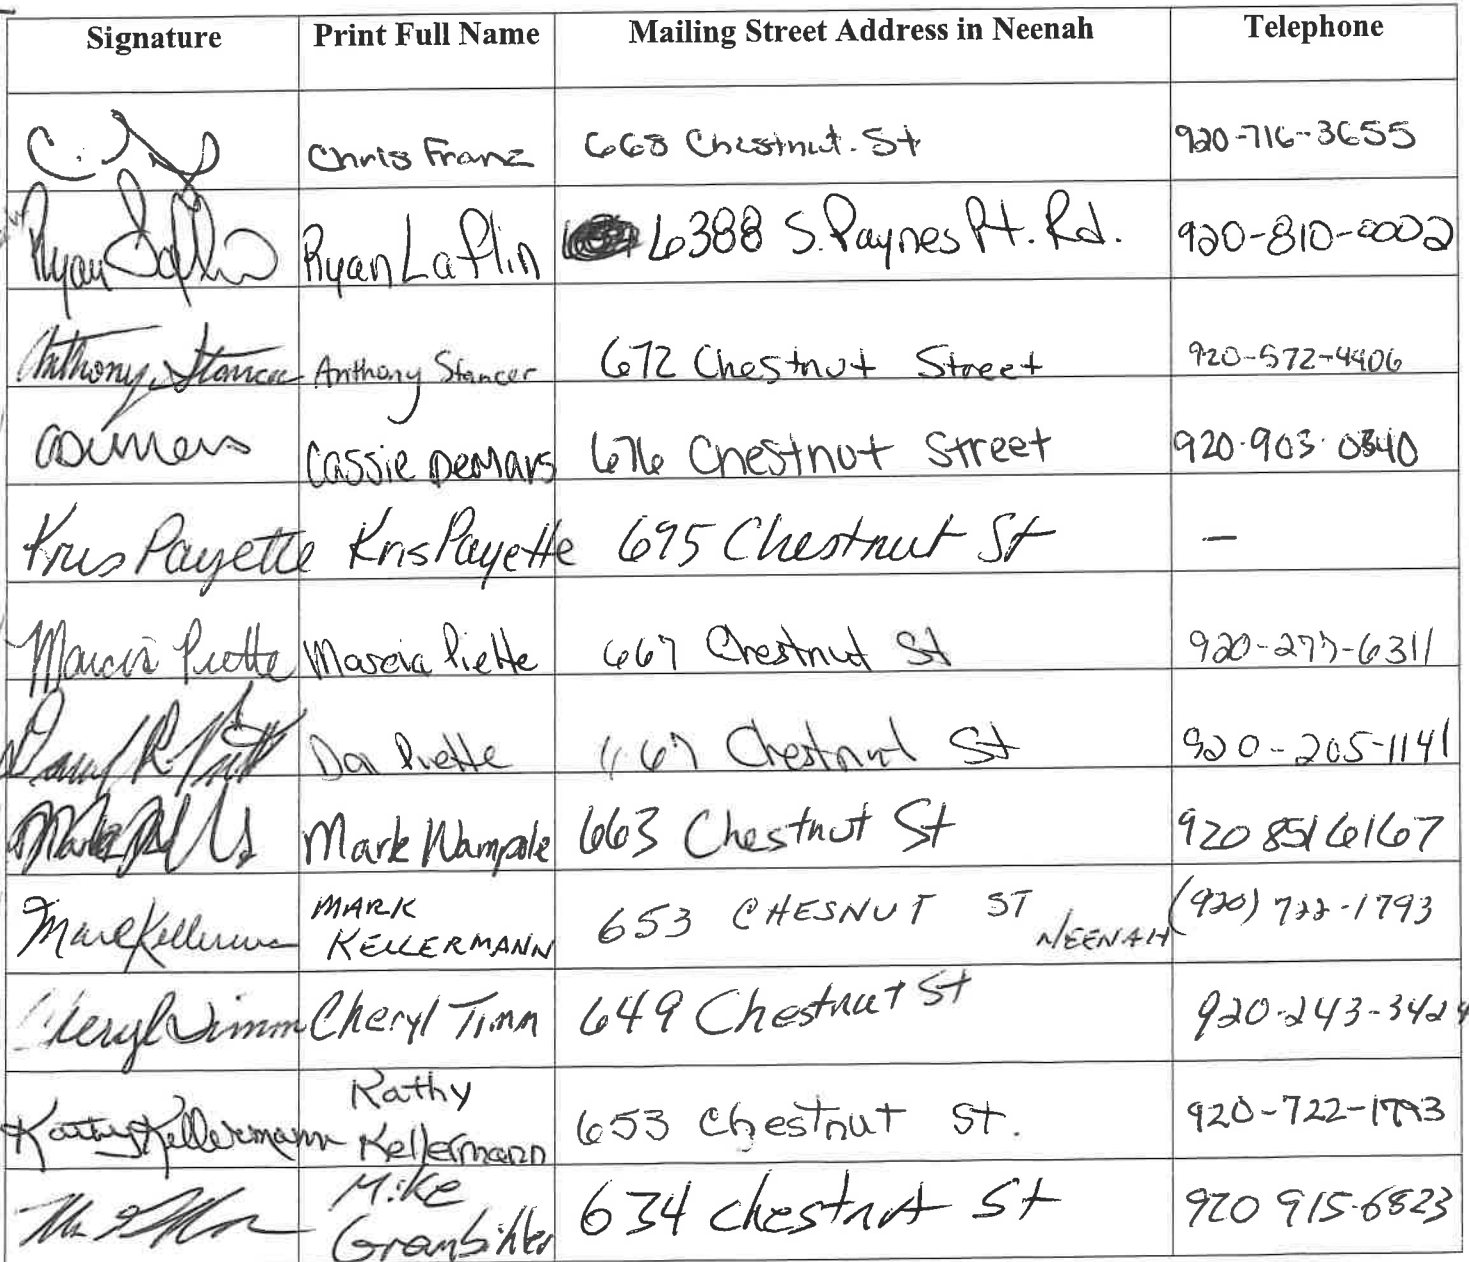 Signature Print Full Name Mailing Street Address in Neenah Telephone
Chris Franz 668 Chestnut. St 920-716-3655
Ryan Laflin Ryan Laflin 6388 S. Paynes Pt. Rd. 920-810-0002
Anthony Stancer Anthony Stancer 672 Chestnut Street 920-572-4406
Cassie DeMars 676 Chestnut Street 920.903.0340
Kris Payette Kris Payette 695 Chestnut St —
Marcia Piette Marcia Piette 667 Chestnut St 920-277-6311
Piette 667 Chestnut St 920-205-1141
Mark Wampole 663 Chestnut St 920 851 6167
Mark Kellermann MARK KELLERMANN 653 CHESNUT ST NEENAH (920) 722-1793
Cheryl Timm Cheryl Timm 649 Chestnut St 920-243-3424
Kathy Kellermann Kathy Kellermann 653 Chestnut St. 920-722-1793
Mike 634 Chestnut St 920 915-6823